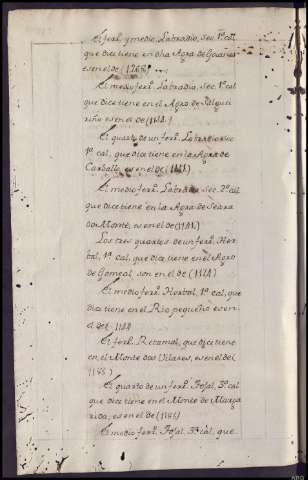 El ferl. y medio, Labradío, Sec. 1ª cal.
que dice tiene en dha Agra de
es en el de (1268)
El medio ferl. Labradío, Sec. 1ª cal.
que dice tiene en el Agro de
riño es en el de (1181.)
El quarto de un ferl. Labradío Sec.
1ª cal. que dice tiene en la Agra de
Carballo, es en el de (1181)
El medio ferl. Labradío Sec. 2ª cal.
que dice tiene en la Agra de Seara
do Monte, es en el de (1181.)
Los tres quartos de un ferl. Hor-
tal, 1ª cal. que dice tiene en el Agro
de son en el de (1181)
El medio ferl. Hortal, 1ª cal. que
dice tiene en el Rio pequeño es en
el de
El ferl. Retamal, que dice tiene
en el Monte dos Vilares, es en el de (
El quarto de un ferl. Tojal, 3ª cal.
que dice tiene en el Monte de Marga
rida; es en el de (1181)
El medio ferl. Tojal, 3ª cal. que